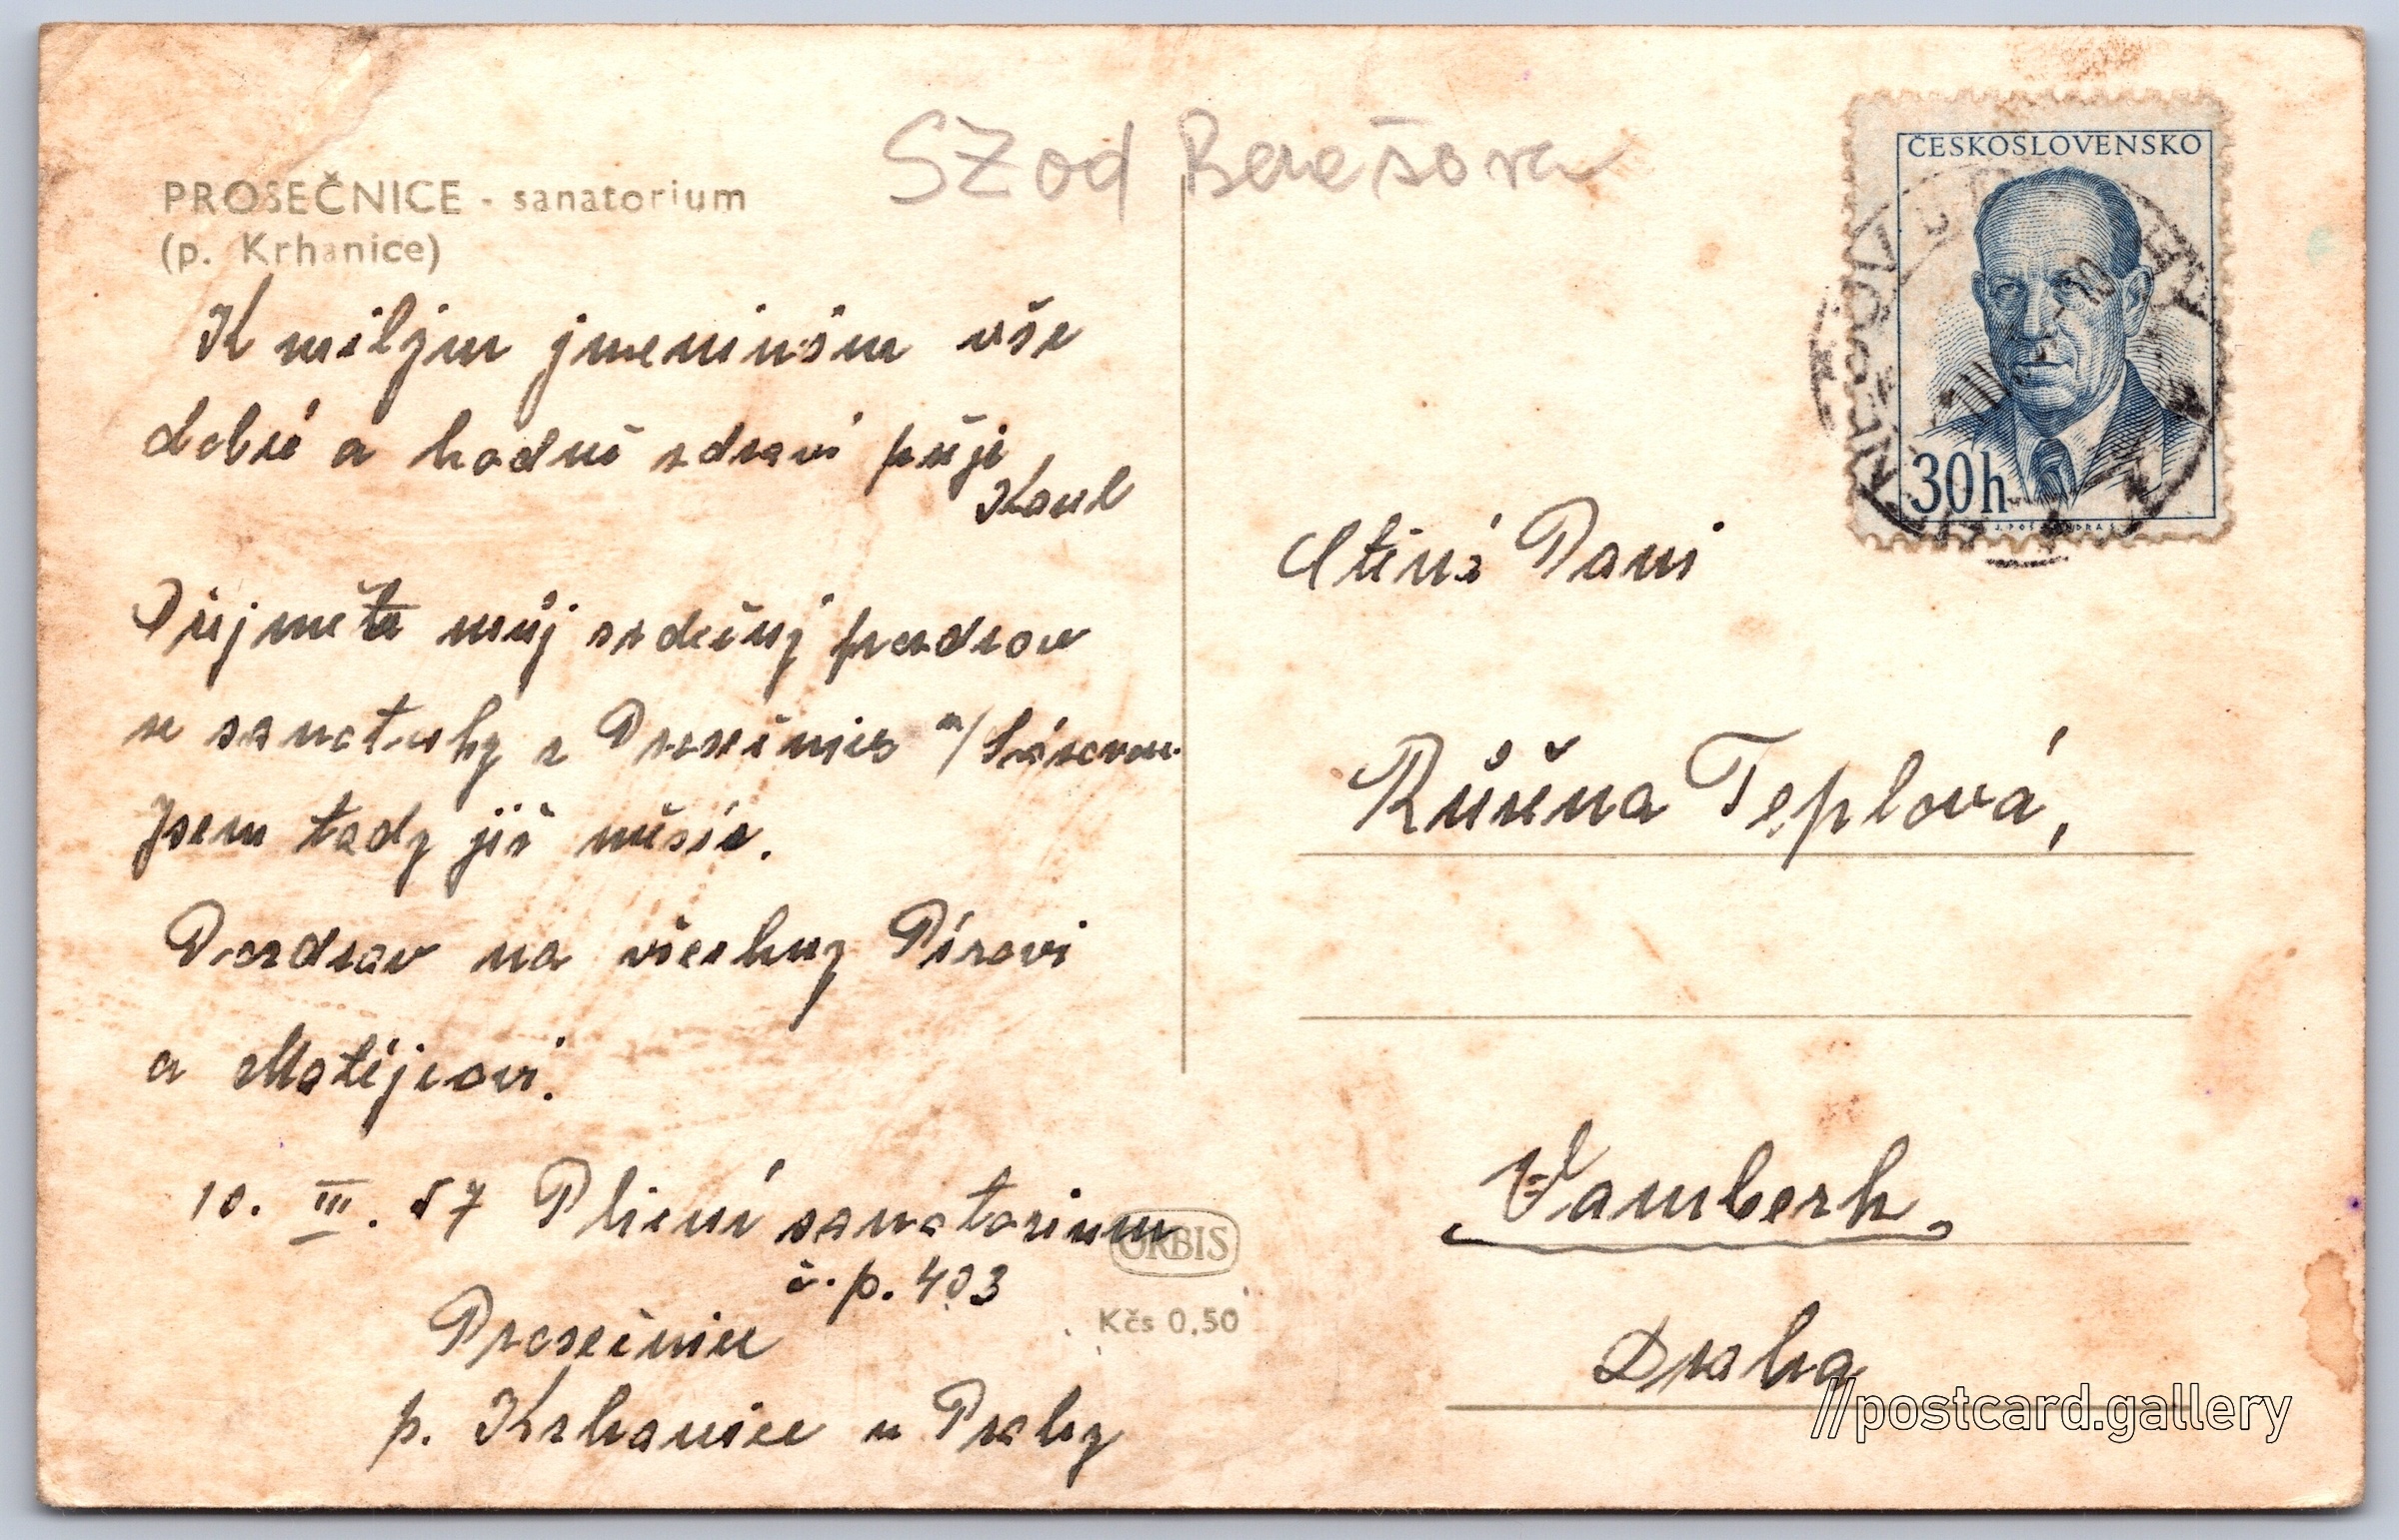 SZ od Benešova
ČESKOSLOVENSKO
30h
PROSEČNICE - sanatorium
(p. Krhanice)
K milým jmeninám vše
dobré a hodně zdraví přeje
Karel
Přijměte můj srdečný pozdrav
se sanatorky z Prosečnice n/Sázavou
Jsem tady již měsíc.
Pozdrav na všechny Pírovi
a Matějcovi.
10. III. 57 Plicní sanatorium
č.p. 403
Prosečnice
p. Krhanice u Prahy
Ctěná Paní
Růžena Teplová,
Vamberk
Draha
ORBIS
Kčs 0,50
//postcard.gallery